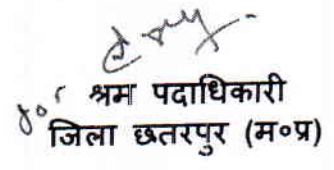 for श्रम पदाधिकारी
जिला छतरपुर (म०प्र)